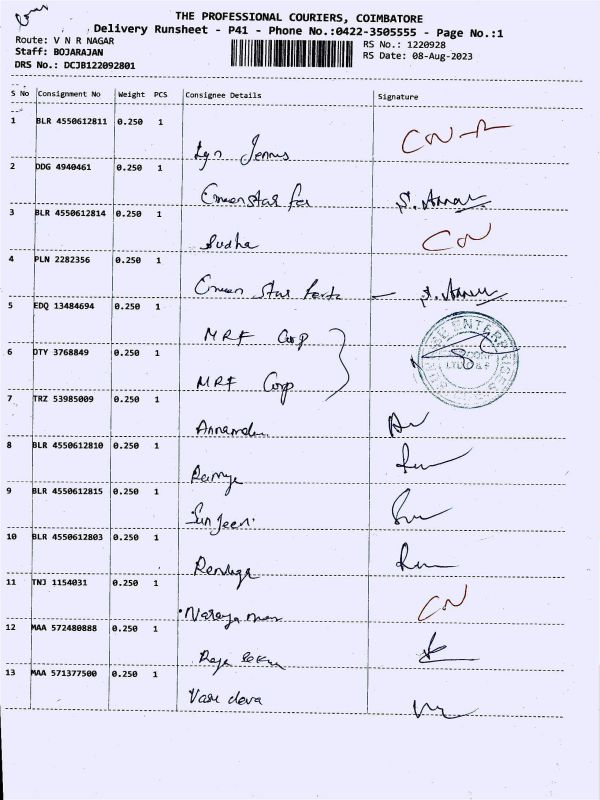 THE PROFESSIONAL COURIERS, COIMBATORE
Delivery Runsheet - P41 - Phone No.:0422-3505555 - Page No.:1
Route: V N R NAGAR
RS No.: 1220928
Staff: BOJARAJAN
RS Date: 08-Aug-2023
DRS No.: DCJB122092801
S No Consignment No Weight PCS Consignee Details Signature
1 BLR 4550612811 0.250 1
2 DDG 4940461 0.250 1
3 BLR 4550612814 0.250 1 Sudha CN
4 PLN 2282356 0.250 1
5 EDQ 13484694 0.250 1 MRF Corp
6 DTY 3768849 0.250 1 MRF Corp
7 TRZ 53985009 0.250 1
8 BLR 4550612810 0.250 1 Ramya
9 BLR 4550612815 0.250 1
10 BLR 4550612803 0.250 1 Renuga
11 TNJ 1154031 0.250 1 CN
12 MAA 572480888 0.250 1
13 MAA 571377500 0.250 1 Vasu deva